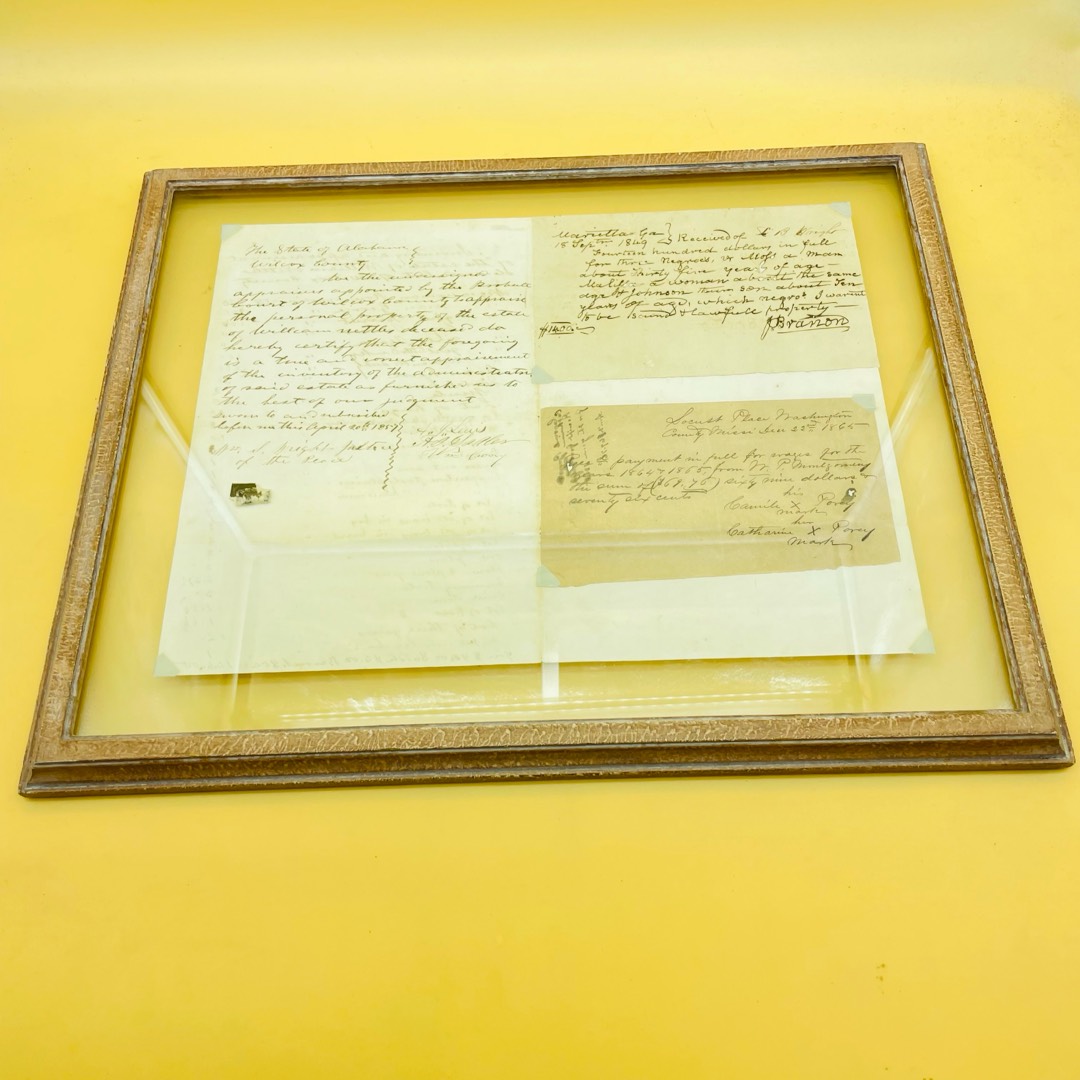 The State of Alabama
Wilcox County
We the undersigned
appraisers appointed by the Probate
Court of Wilcox County to appraise
the personal property of the estate
of William deceased do
hereby certify that the foregoing
is a true and correct appraisement
of the inventory of the administrator
of said estate as furnished us to
the best of our judgment
Sworn to and subscribed
before me this April 20th 1857
Wright Justice
of the Peace
Marietta Ga
15 Septr. 1849 Received of Wright
Fourteen hundred dollars in full
for three negroes, a man
about thirty five years of age
a woman about the same
age & Johnson their son about Ten
years of age, which negros I warrant
to be Sound & Lawfull property
J Branon
Locust Place Washington
County Missi 22nd 1865
payment in full for wages for the
years 1864 & 1865 from W. P. Montgomery
the sum of ($69.76) sixty nine dollars &
seventy six cents
his
Camile X Povey
mark
her
Catharine X Povey
mark